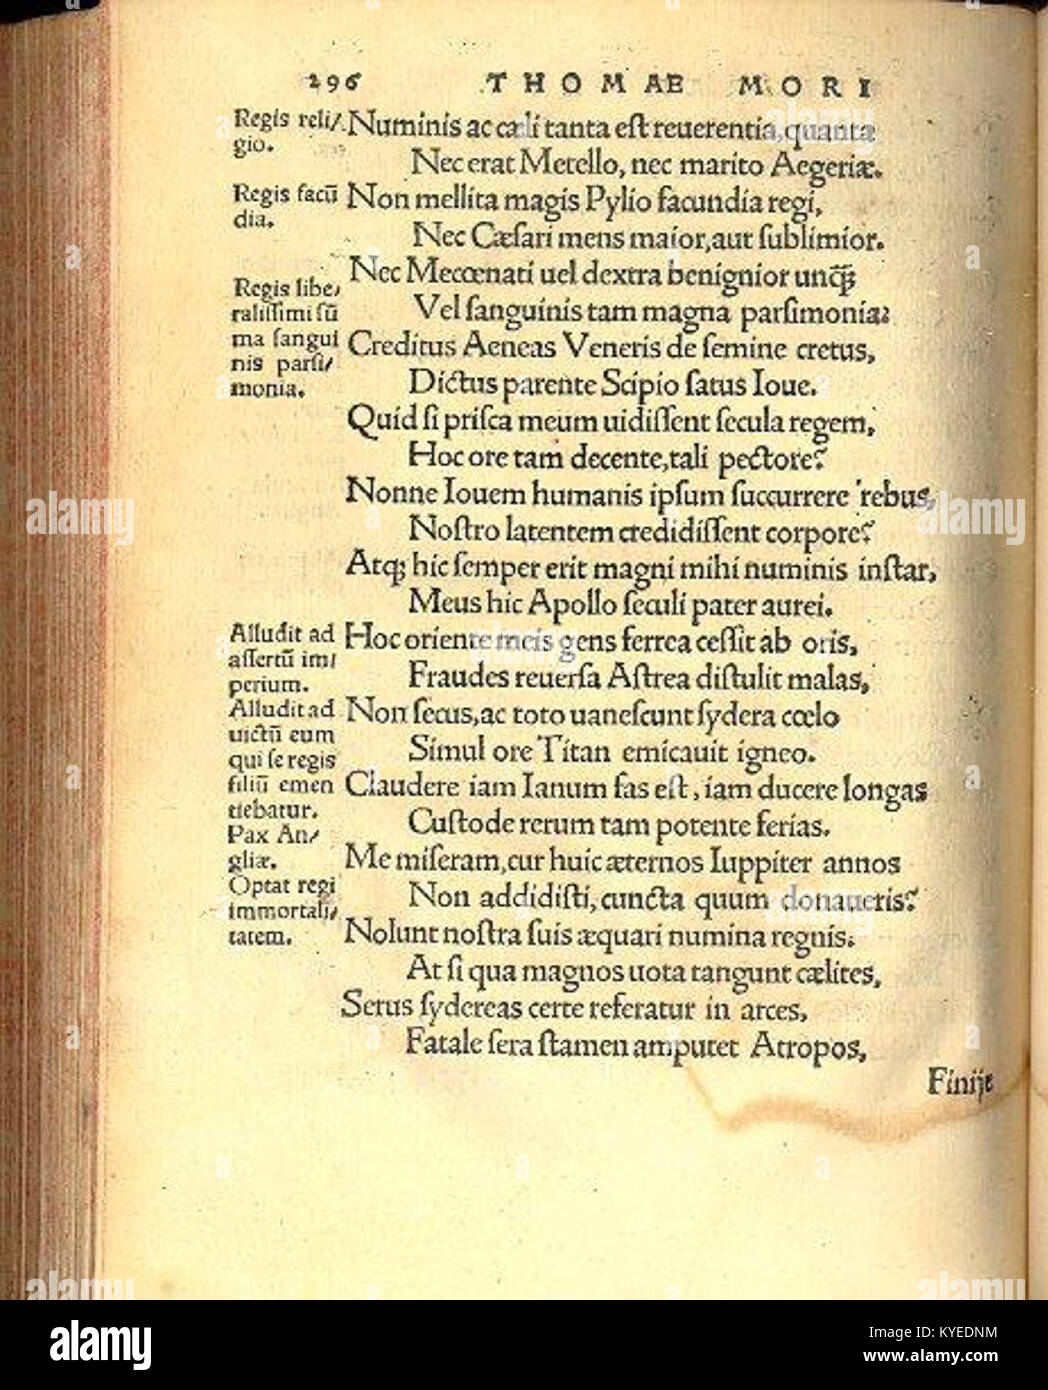 296 THOMAE MORI
Regis reli/
gio.
Numinis ac cæli tanta eſt reuerentia, quanta
Nec erat Metello, nec marito Aegeriæ.
Regis facū
dia.
Non mellita magis Pylio facundia regi,
Nec Cæſari mens maior, aut ſublimior.
Nec Mecœnati uel dextra benignior unq̃ꝫ
Vel ſanguinis tam magna parſimonia:
Regis libe/
raliſſimi ſū
ma ſangui
nis parſi/
monia.
Creditus Aeneas Veneris de ſemine cretus,
Dictus parente Scipio ſatus Ioue.
Quid ſi priſca meum uidiſſent ſecula regem,
Hoc ore tam decente, tali pectore?
Nonne Iouem humanis ipſum ſuccurrere rebus,
Noſtro latentem credidiſſent corpore?
Atqꝫ hic ſemper erit magni mihi numinis inſtar,
Meus hic Apollo ſeculi pater aurei.
Alludit ad
aſſertū im/
perium.
Hoc oriente meis gens ferrea ceſſit ab oris,
Fraudes reuerſa Aſtrea diſtulit malas,
Alludit ad
uictū eum
qui ſe regis
filiū emen
tiebatur.
Non ſecus, ac toto uaneſcunt ſydera cœlo
Simul ore Titan emicauit igneo.
Claudere iam Ianum fas eſt, iam ducere longas
Cuſtode rerum tam potente ferias.
Pax An/
gliæ.
Me miſeram, cur huic æternos Iuppiter annos
Non addidiſti, cuncta quum donaueris?
Optat regi
immortali/
tatem.
Nolunt noſtra ſuis æquari numina regnis:
At ſi qua magnos uota tangunt cælites,
Serus ſydereas certe referatur in arces,
Fatale ſera ſtamen amputet Atropos,
Finijt
alamy
Image ID: KYEDNM
www.alamy.com